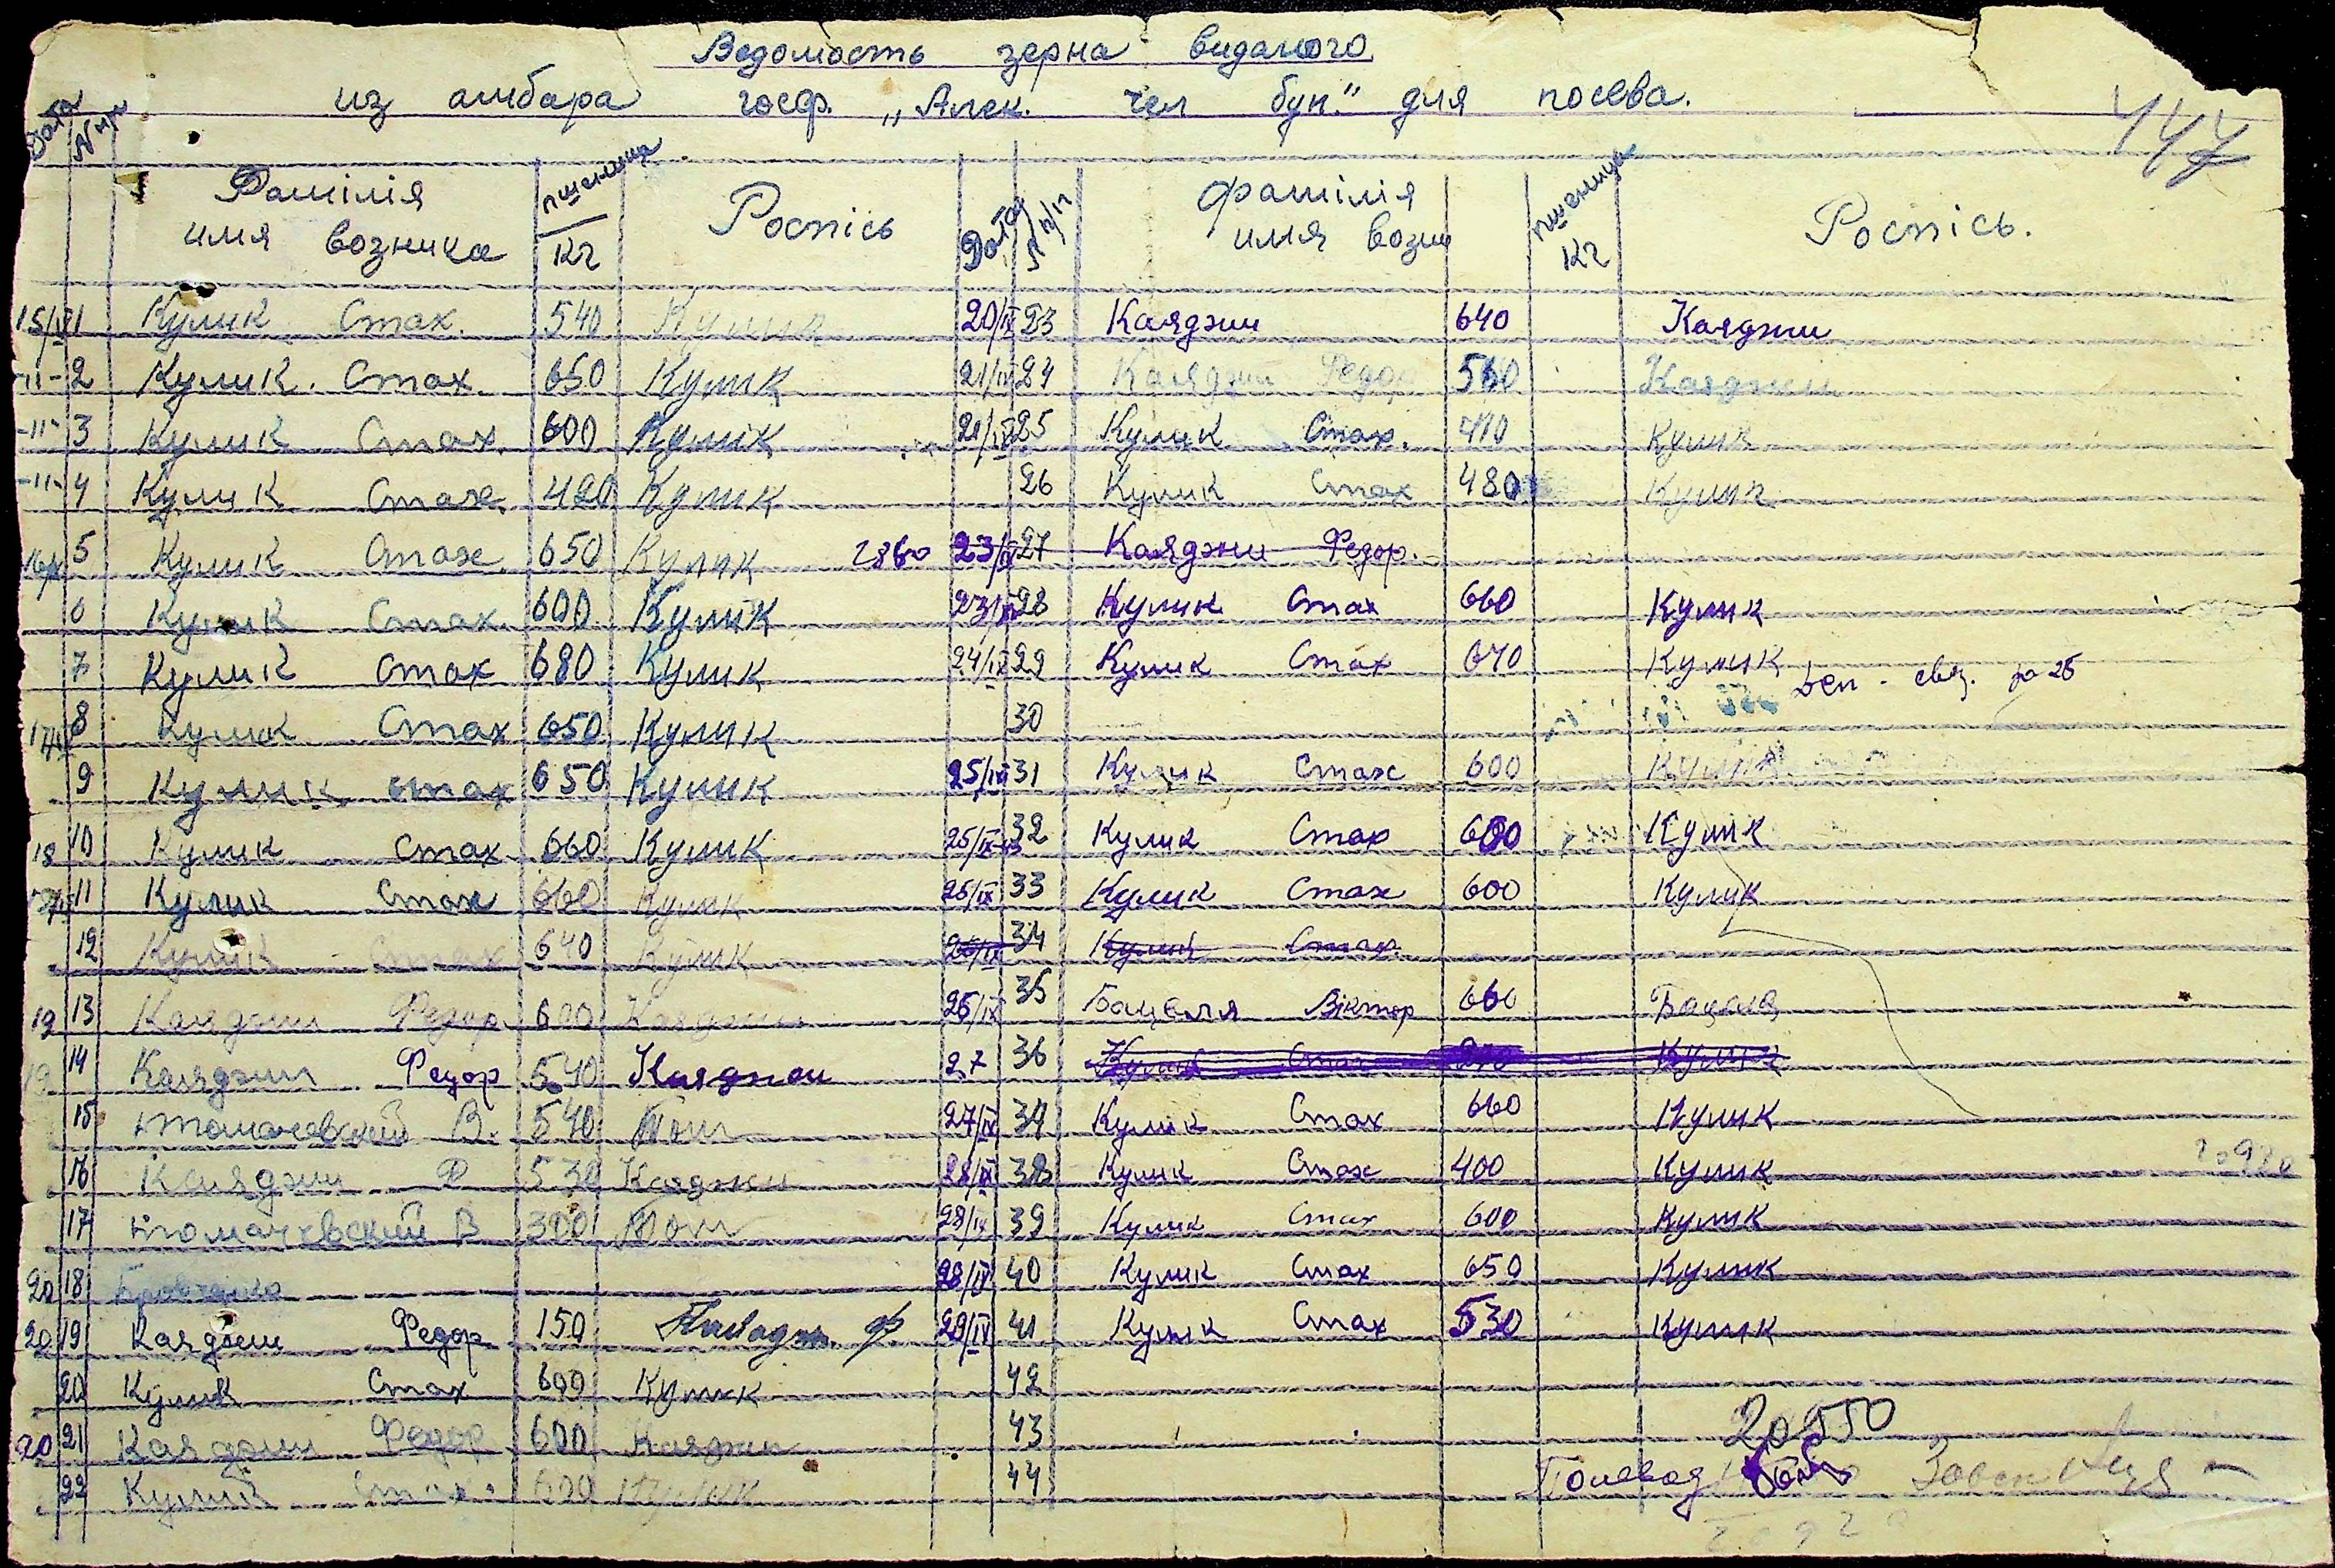 Ведомость зерна виданого
из амбара госф. „Алек. чел бун." для посева.
447
Дата № п/п Фамілія имя возника пшеница кг Роспісь
Дата № п/п Фамілія имя возн пшеница кг Роспісь.
15/IX 1 Кулик Стах. 540 Кулик
-11- 2 Кулик. Стах. 650 Кулик
-11- 3 Кулик Стах. 600 Кулик
-11- 4 Кулик Стах. 420 Кулик
16/IX 5 Кулик Стах. 650 Кулик 2860
6 Кулик Стах. 600 Кулик
7 Кулик Стах 680 Кулик
17/IX 8 Кулик Стах 650 Кулик
9 Кулик Стах 650 Кулик
18 10 Кулик Стах 660 Кулик
11 Кулик Стах 660 Кулик
12 Кулик Стах 640 Кулик
19 13 Каяджи Федор 600 Каяджи
19 14 Каяджи Федор 540 Каяджи
15 Томачевский В. 540 Том
16 Каяджи Ф 530 Каяджи
17 Томачевский В 300 Том
20 18
20 19 Каяджи Федор 150
20 Кулик Стах 600 Кулик
20 21 Каяджи Федор 600 Каяджи
22 Кулик Стах. 600 Кулик
20/IX 23 Каяджи 640 Каяджи
21/IX 24 Каяджи Федор 560 Каяджи
21/IX 25 Кулик Стах. 410 Кулик
26 Кулик Стах 480 Кулик
23/IX 27 Каяджи Федор.
23/IX 28 Кулик Стах 660 Кулик
24/IX 29 Кулик Стах 670 Кулик
30
25/IX 31 Кулик Стах 600 Кулик
25/IX 32 Кулик Стах 600 Кулик
25/IX 33 Кулик Стах 600 Кулик
26/IX 34 Кулик Стах.
26/IX 35 Бацеля Віктор 660 Бацеля
27 36 Кулик Стах Кулик
27/IX 37 Кулик Стах 660 Кулик
28/IX 38 Кулик Стах 400 Кулик
28/IX 39 Кулик Стах 600 Кулик
28/IX 40 Кулик Стах 650 Кулик
29/IX 41 Кулик Стах 530 Кулик
42
43
44
20950
Полевод